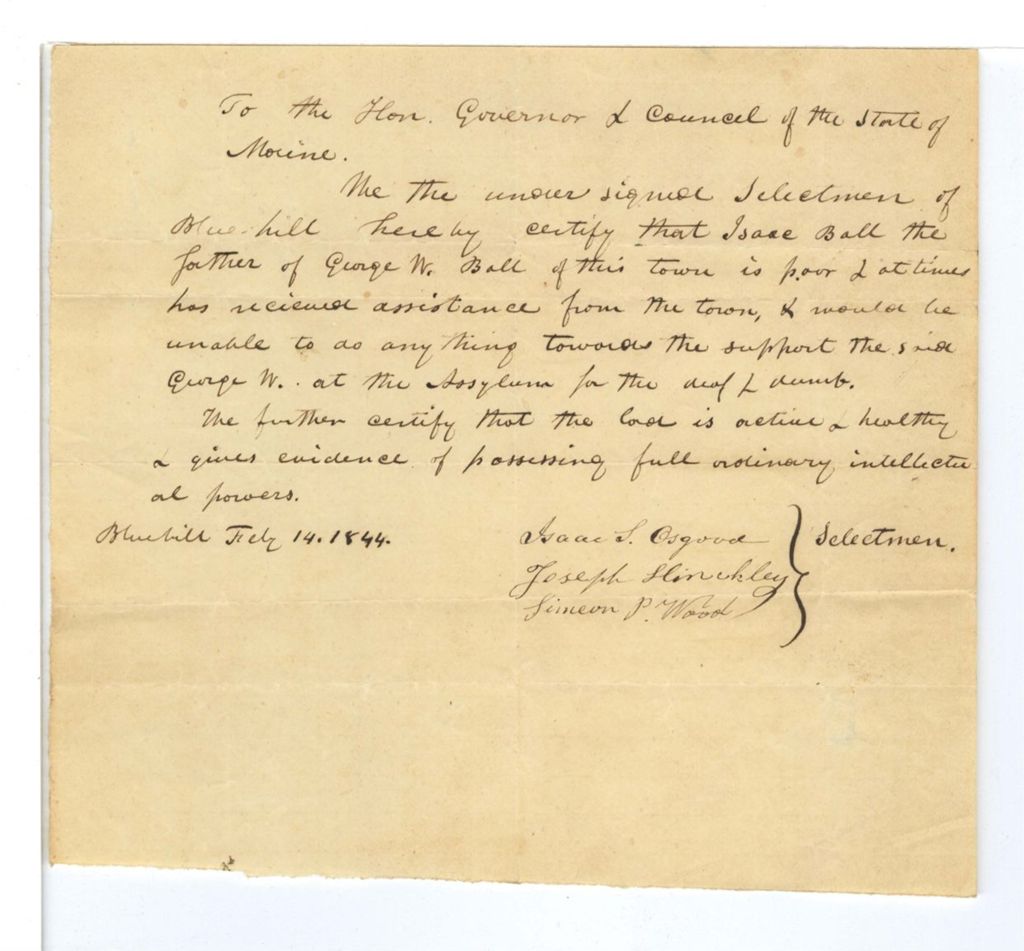 To the Hon. Governor & Councel of the State of
Maine.
We the under signed Selectmen of
Bluehill hereby certify that Isaac Ball the
father of George W. Ball of this town is poor & at times
has recieved assistance from the town, & would be
unable to do any thing towards the support the said
George W. at the Assylum for the deaf & dumb.
We further certify that the lad is active & healthy
& gives evidence of possessing full ordinary intellectu
al powers.
Bluehill Feby 14. 1844.
Isaac S. Osgood
Joseph Hinckley
Simeon P. Wood
Selectmen.